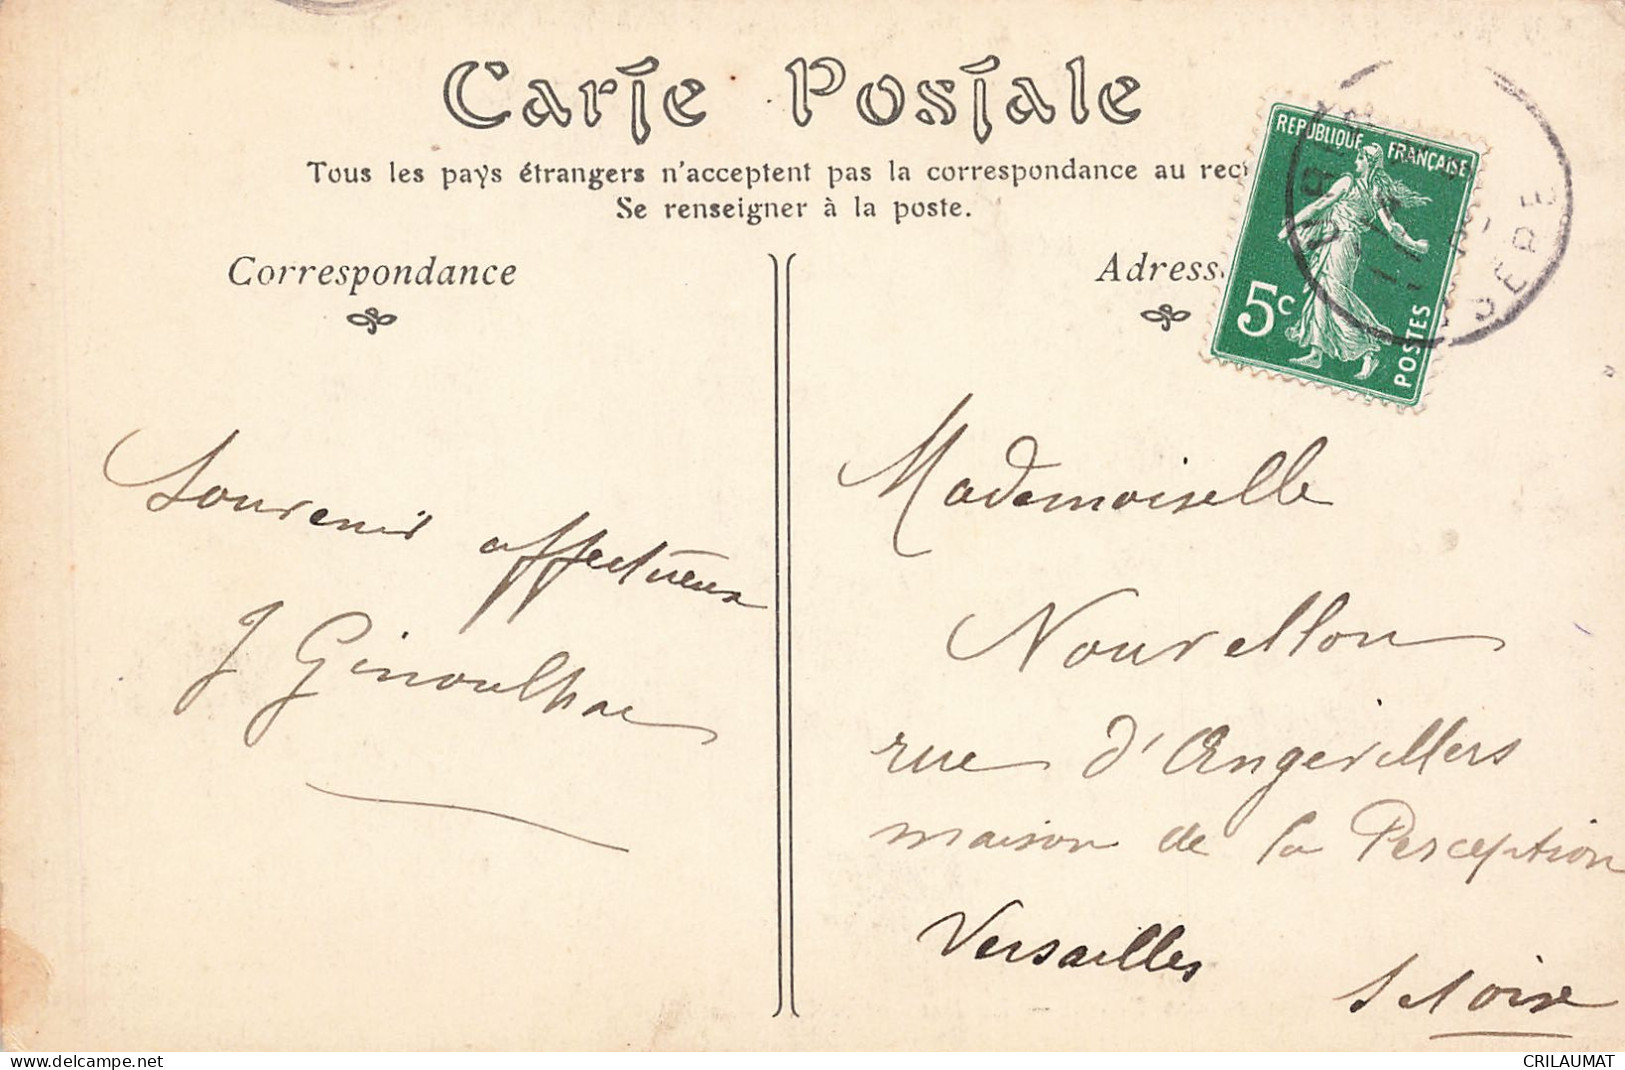 Carte Postale
Tous les pays étrangers n'acceptent pas la correspondance au rec
Se renseigner à la poste.
Correspondance
Adress
REPUBLIQUE FRANÇAISE
5c
POSTES
Souvenir affectueux
J Ginoulhac
Mademoiselle
Nourellon
rue d'Angervillers
maison de la Perception
Versailles
S et Oise
www.delcampe.net
CRILAUMAT